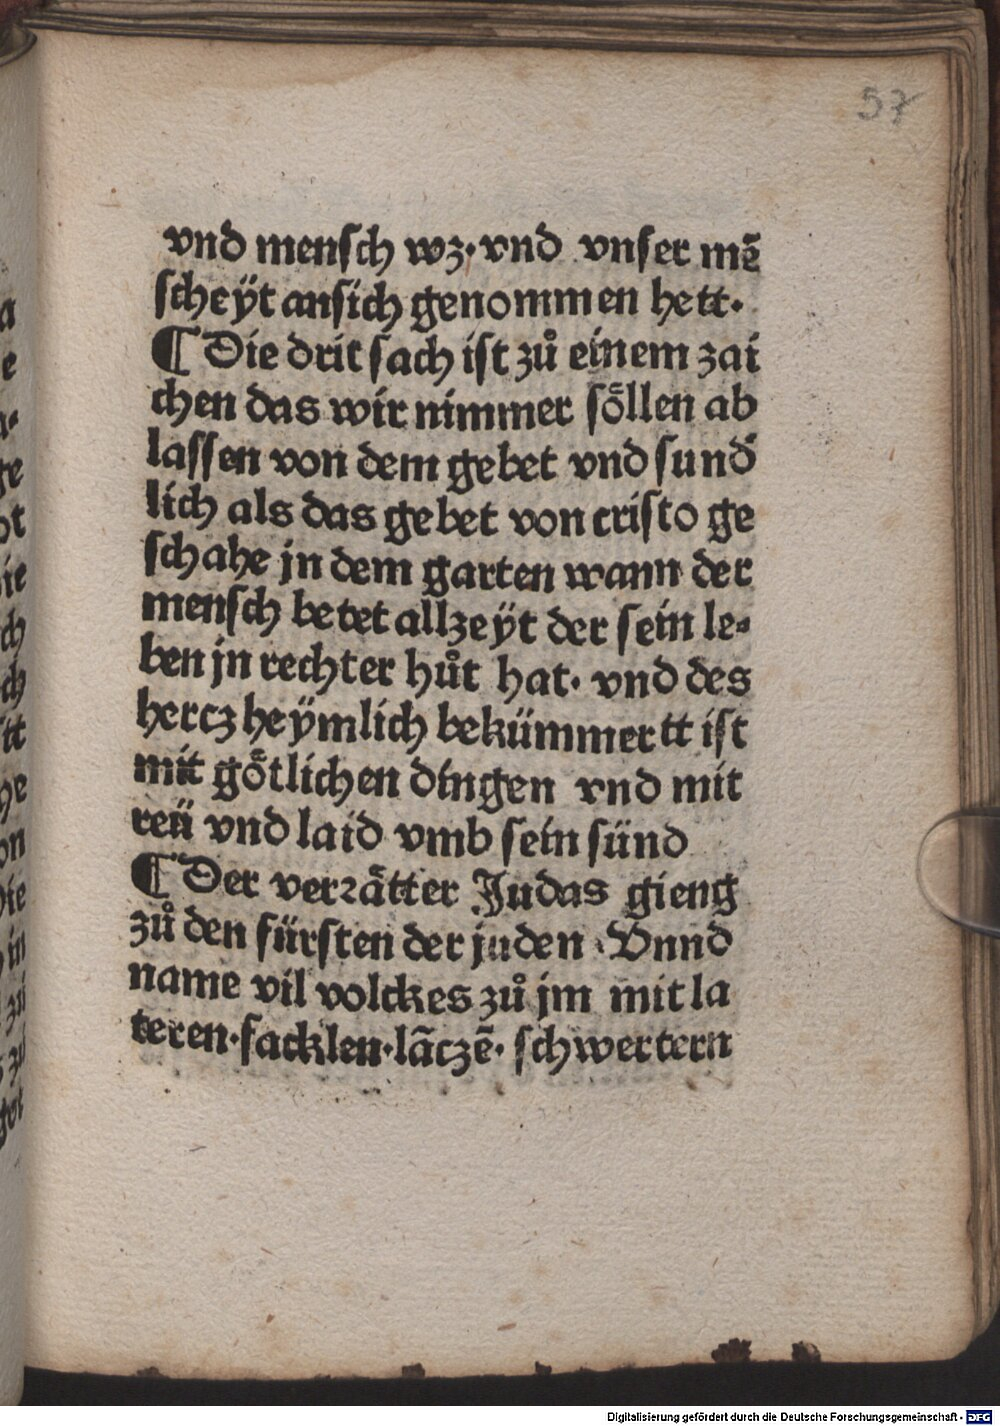 57
vnd mensch wz· vnd vnser mē
scheÿt ansich genommen hett·
¶ Die drit sach ist zů einem zai
chen das wir nimmer soͤllen ab
lassen von dem gebet vnd sund͛
lich als das gebet von cristo ge
schahe jn dem garten wann der
mensch betet allzeÿt der sein le⸗
ben jn rechter hůt hat· vnd des
hercz heÿmlich bekümmertt ist
mit goͤtlichen dingen vnd mit
reü vnd laid vmb sein sünd
¶ Der verꝛaͤtter Judas gieng
zů den fürsten der juden · Vnnd
name vil volckes zů jm mit la
teren· facklen· lāczē· schwertern
Digitalisierung gefördert durch die Deutsche Forschungsgemeinschaft - DFG